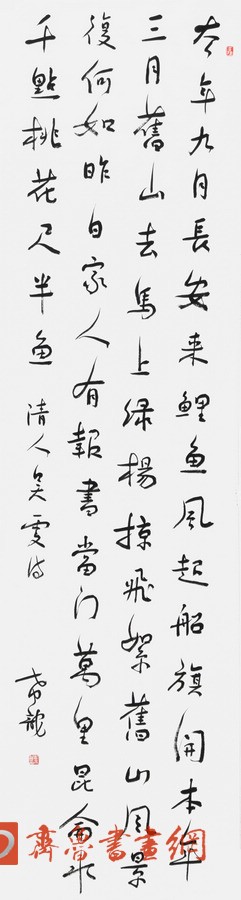 去年九月長安来鯉魚風起船旗開本年
三月舊山去馬上绿楊掠飛絮舊山風景
復何如昨日家人有報書當门萬里昆侖水
千點桃花尺半魚
清人吴雯诗
齊魯書畫網